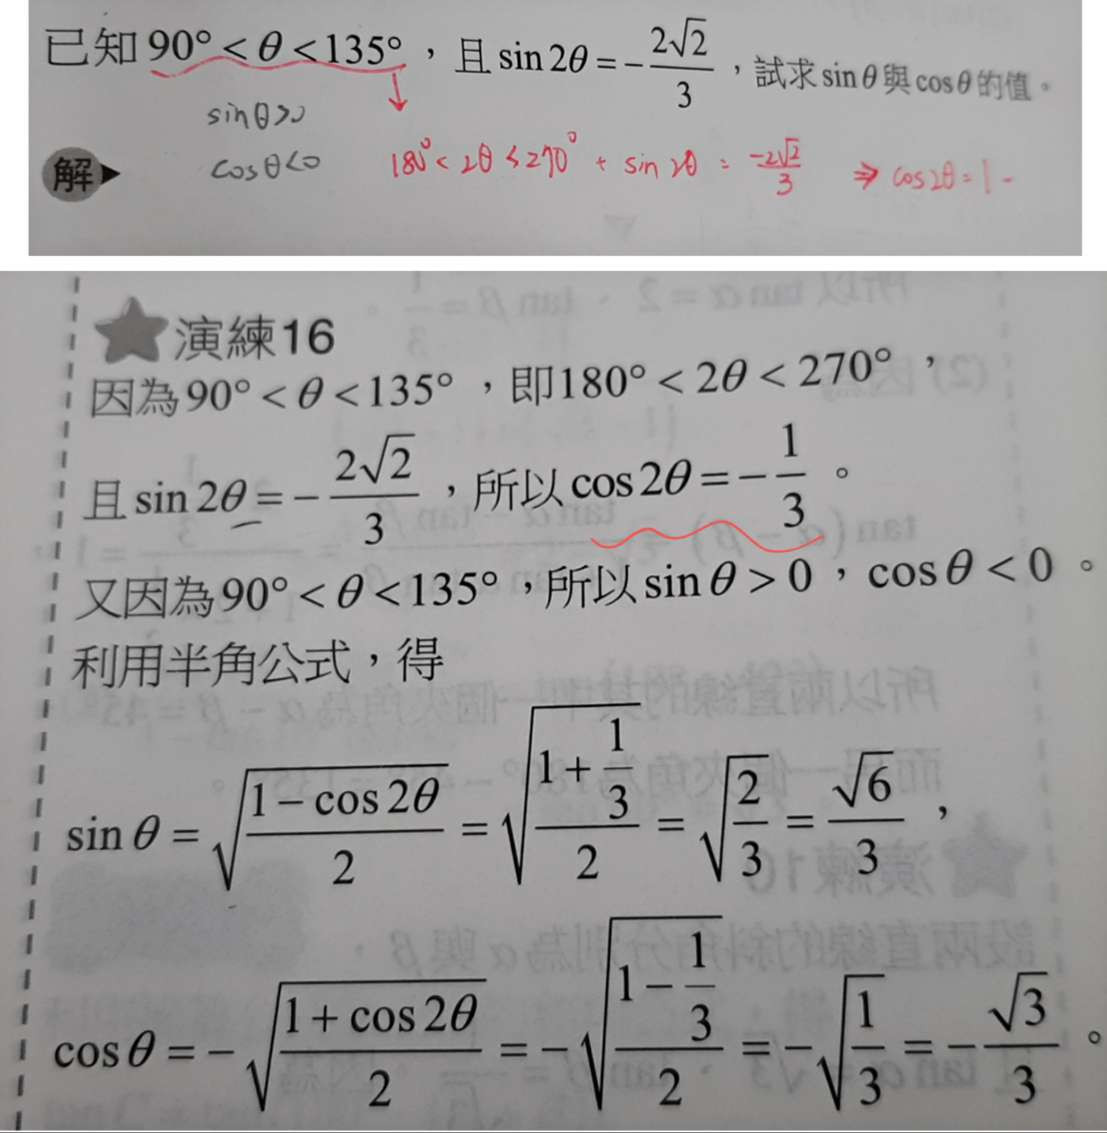 已知 90° < θ < 135°，且 sin 2θ = −\frac{2√2}{3}，試求 sin θ 與 cos θ 的值。
sinθ>0
解▶ cosθ<0 180° < 2θ < 270° + sin 2θ = \frac{-2√2}{3} ⇒ cos2θ = 1 -
演練16
因為 90° < θ < 135°，即 180° < 2θ < 270°，
且 sin 2θ = −\frac{2√2}{3}，所以 cos 2θ = −\frac{1}{3}。
又因為 90° < θ < 135°，所以 sin θ > 0，cos θ < 0。
利用半角公式，得
sin θ = \sqrt{\frac{1 − cos 2θ}{2}} = \sqrt{\frac{1 + \frac{1}{3}}{2}} = \sqrt{\frac{2}{3}} = \frac{√6}{3}，
cos θ = −\sqrt{\frac{1 + cos 2θ}{2}} = −\sqrt{\frac{1 − \frac{1}{3}}{2}} = −\sqrt{\frac{1}{3}} = −\frac{√3}{3}。